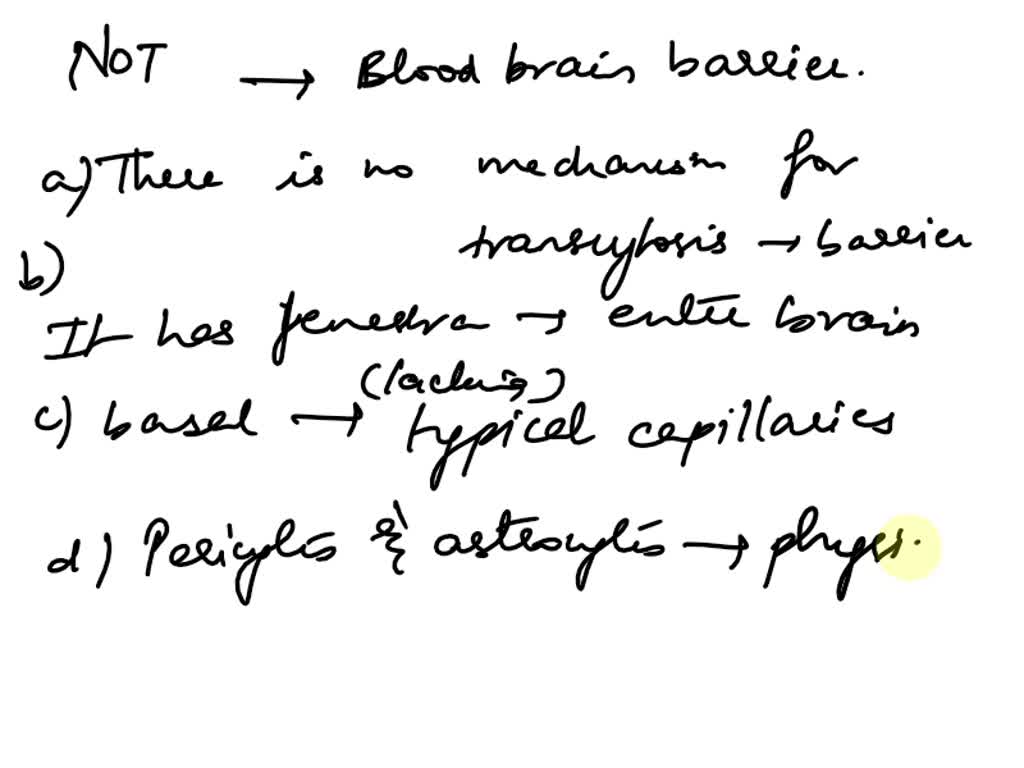 NOT → Blood brain barrier.
a) There is no mechanism for
transcytosis → barrier
b)
It has fenestra → enter brain
(lacking)
c) basal → typical capillaries
d) Pericytes & astrocytes → physi.